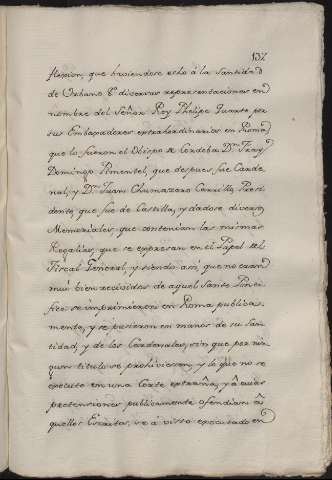 137
flexion, que haviendose echo à la Santidad
de Urbano 8º diversas representaciones en
nombre del Señor Rey Phelipe Quarto por
sus Embaxadores extrahordinarios en Roma
que lo fueron el Obispo de Cordoba Dn. Fray
Domingo Pimentel, que despues fue Carde
nal, y Dn. Juan Chumazero Carrillo, Presi
dente que fue de Castilla, y dadose diversos
Memoriales, que contenian las mismas
Regalias, que se expresan en el Papel del
Fiscal General, y siendo asi, que no eran
mui bien recividos de aquel Santo Ponti
fice se imprimieron en Roma publica
mente, y se pusieron en manos de su San
tidad, y de los Cardenales, sin que por nin
gun titulo se prohiviesen, y lo que no se
executo en una Corte extraña, y à cuias
pretensiones publicamente ofendian à
quellos Escritos, se à visto executado en